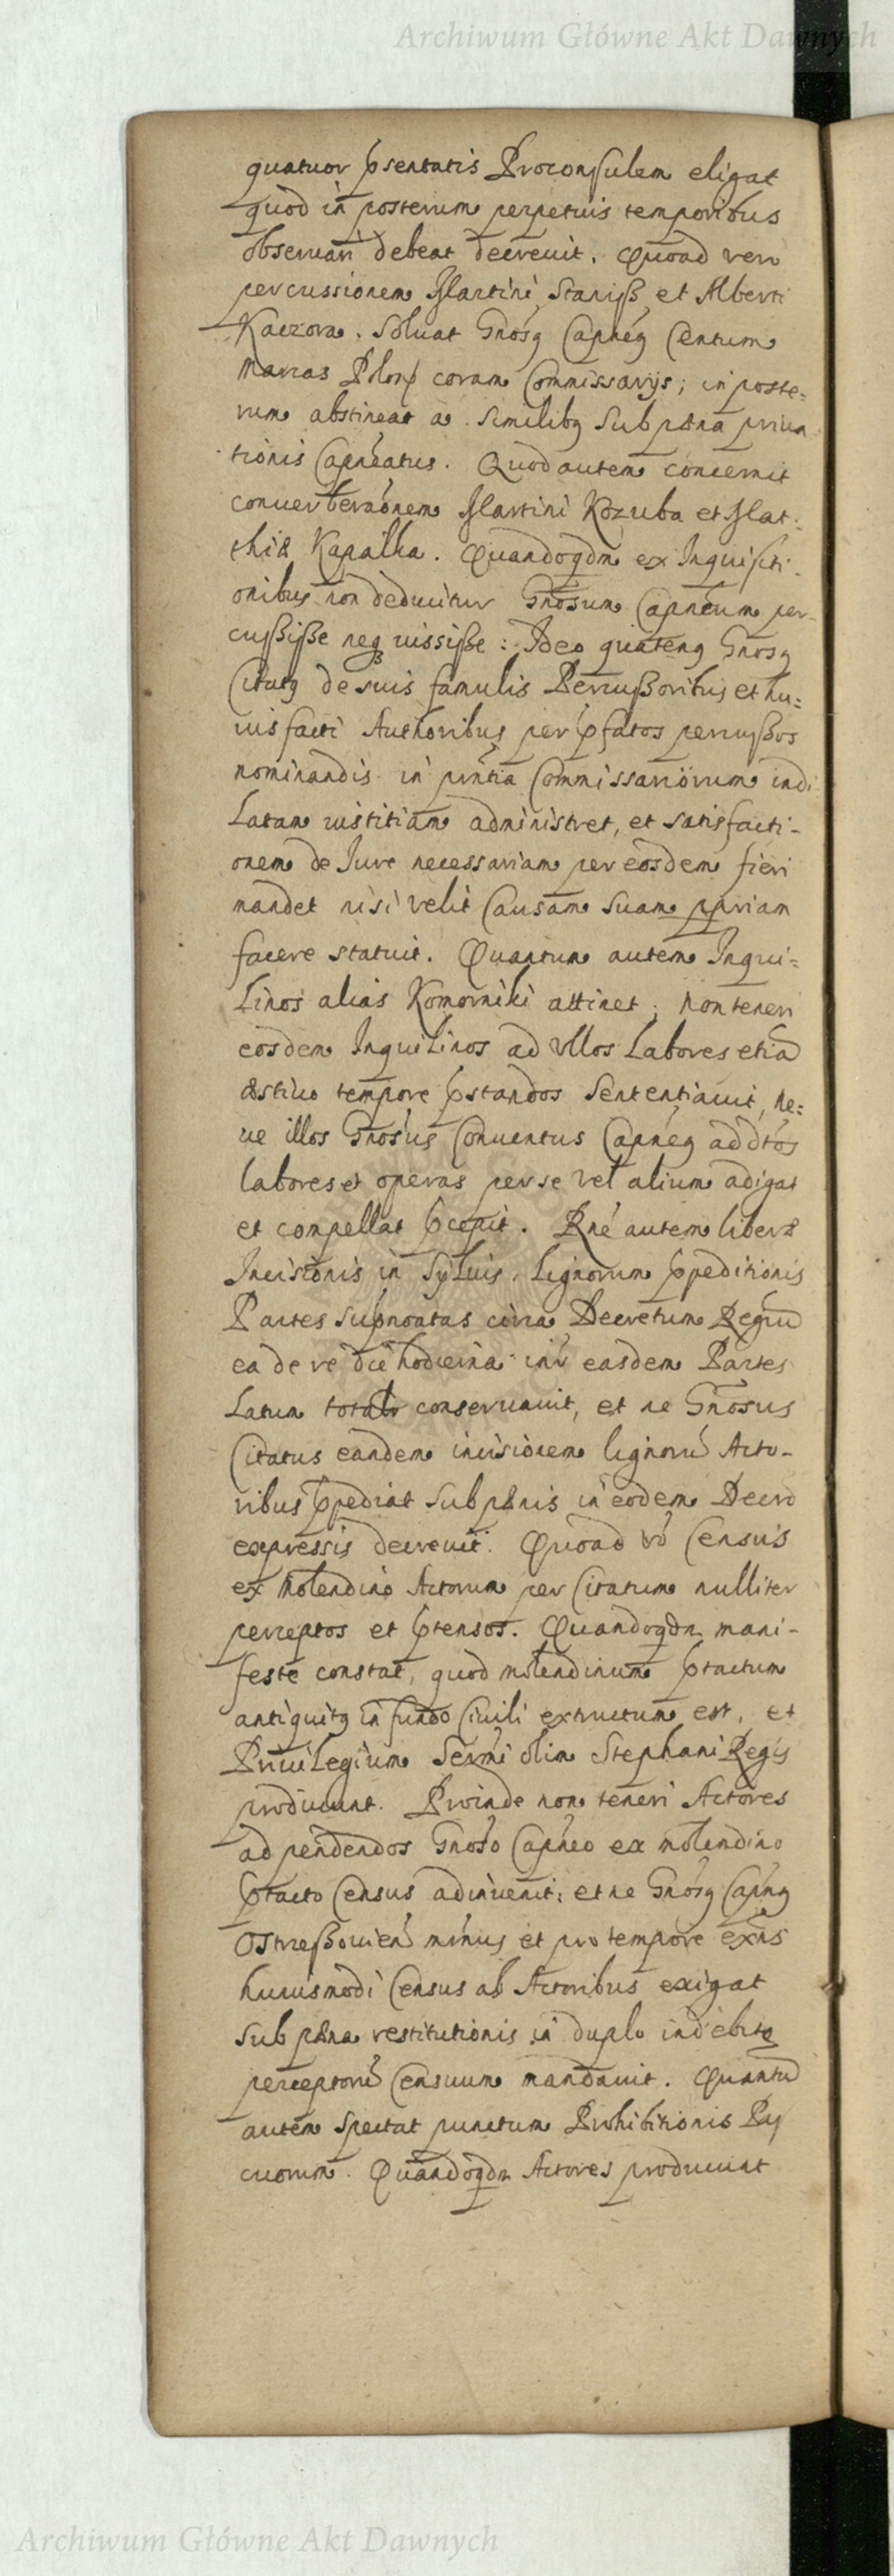 Archiwum Główne Akt Dawnych
quatuor psentatis Proconsulem eligat
quod in posterum perpetuis temporibus
observari debeat decrevit. Quoad vero
percussionem Martini Staniss et Alberti
Kaczora. Solvat Gnosq Capneq Centum
Marcas Polon coram Commissarijs; in poste=
rum abstineat a similibq sub pæna priva
tionis Capneatus. Quod autem concernit
converberaonem Martini Kozuba et Mat:
thiæ Kapalka. Quandoqdm ex Inquisiti-
onibus non deducitur Gnosum Capneum per-
cussisse neq iussisse: Ideo quatenq Gnosq
Citatq de suis famulis Percussoribus et hu=
ius facti Authoribus per pfatos percussos
nominandis in pntia Commissariorum indi
Latam iustitiam administret, et satisfacti-
onem de Jure necessariam per eosdem fieri
mandet nisi velit Causam suam ppriam
facere statuit. Quantum autem Inqui=
Linos alias Komorniki attinet; non teneri
eosdem Inquilinos ad ullos Labores etia
æstivo tempore pstandos Sententiavit, ne=
ve illos Gnosus Conventus Capneq ad dtos
labores et operas per se vel alium adigat
et compellat pcepit. Rne autem liberæ
Incisionis in Sylvis, Lignorum ppeditionis
Partes supnoatas circa Decretum Regiu
ea de re die hodierna inr easdem Partes
Latum total conservavit, et ne Gnosus
Citatus eandem incisionem lignoru Acto-
ribus ppediat sub pænis in eodem Decro
expressis decrevit. Quoad vo Census
ex Molendino Actorum per Citatum nulliter
perceptos et ptensos. Quandoqdm mani-
feste constat, quod molendinum ptactum
antiquitq in fundo Civili extructum est, et
Privilegium Sermi olim Stephani Regis
producunt. Proinde non teneri Actores
ad pendendos Gnoso Capneo ex molendino
ptacto Census adinvenit; et ne Gnosq Capnq
Ostressovien mrnus et pro tempore exns
huiusmodi Census ab Actoribus exigat
sub pæna restitutionis in duplo indebite
perceptoru Censuum mandavit. Quantu
autem spectat punctum Prohibitionis Py
cuorum. Quandoqdm Actores producunt
Archiwum Główne Akt Dawnych